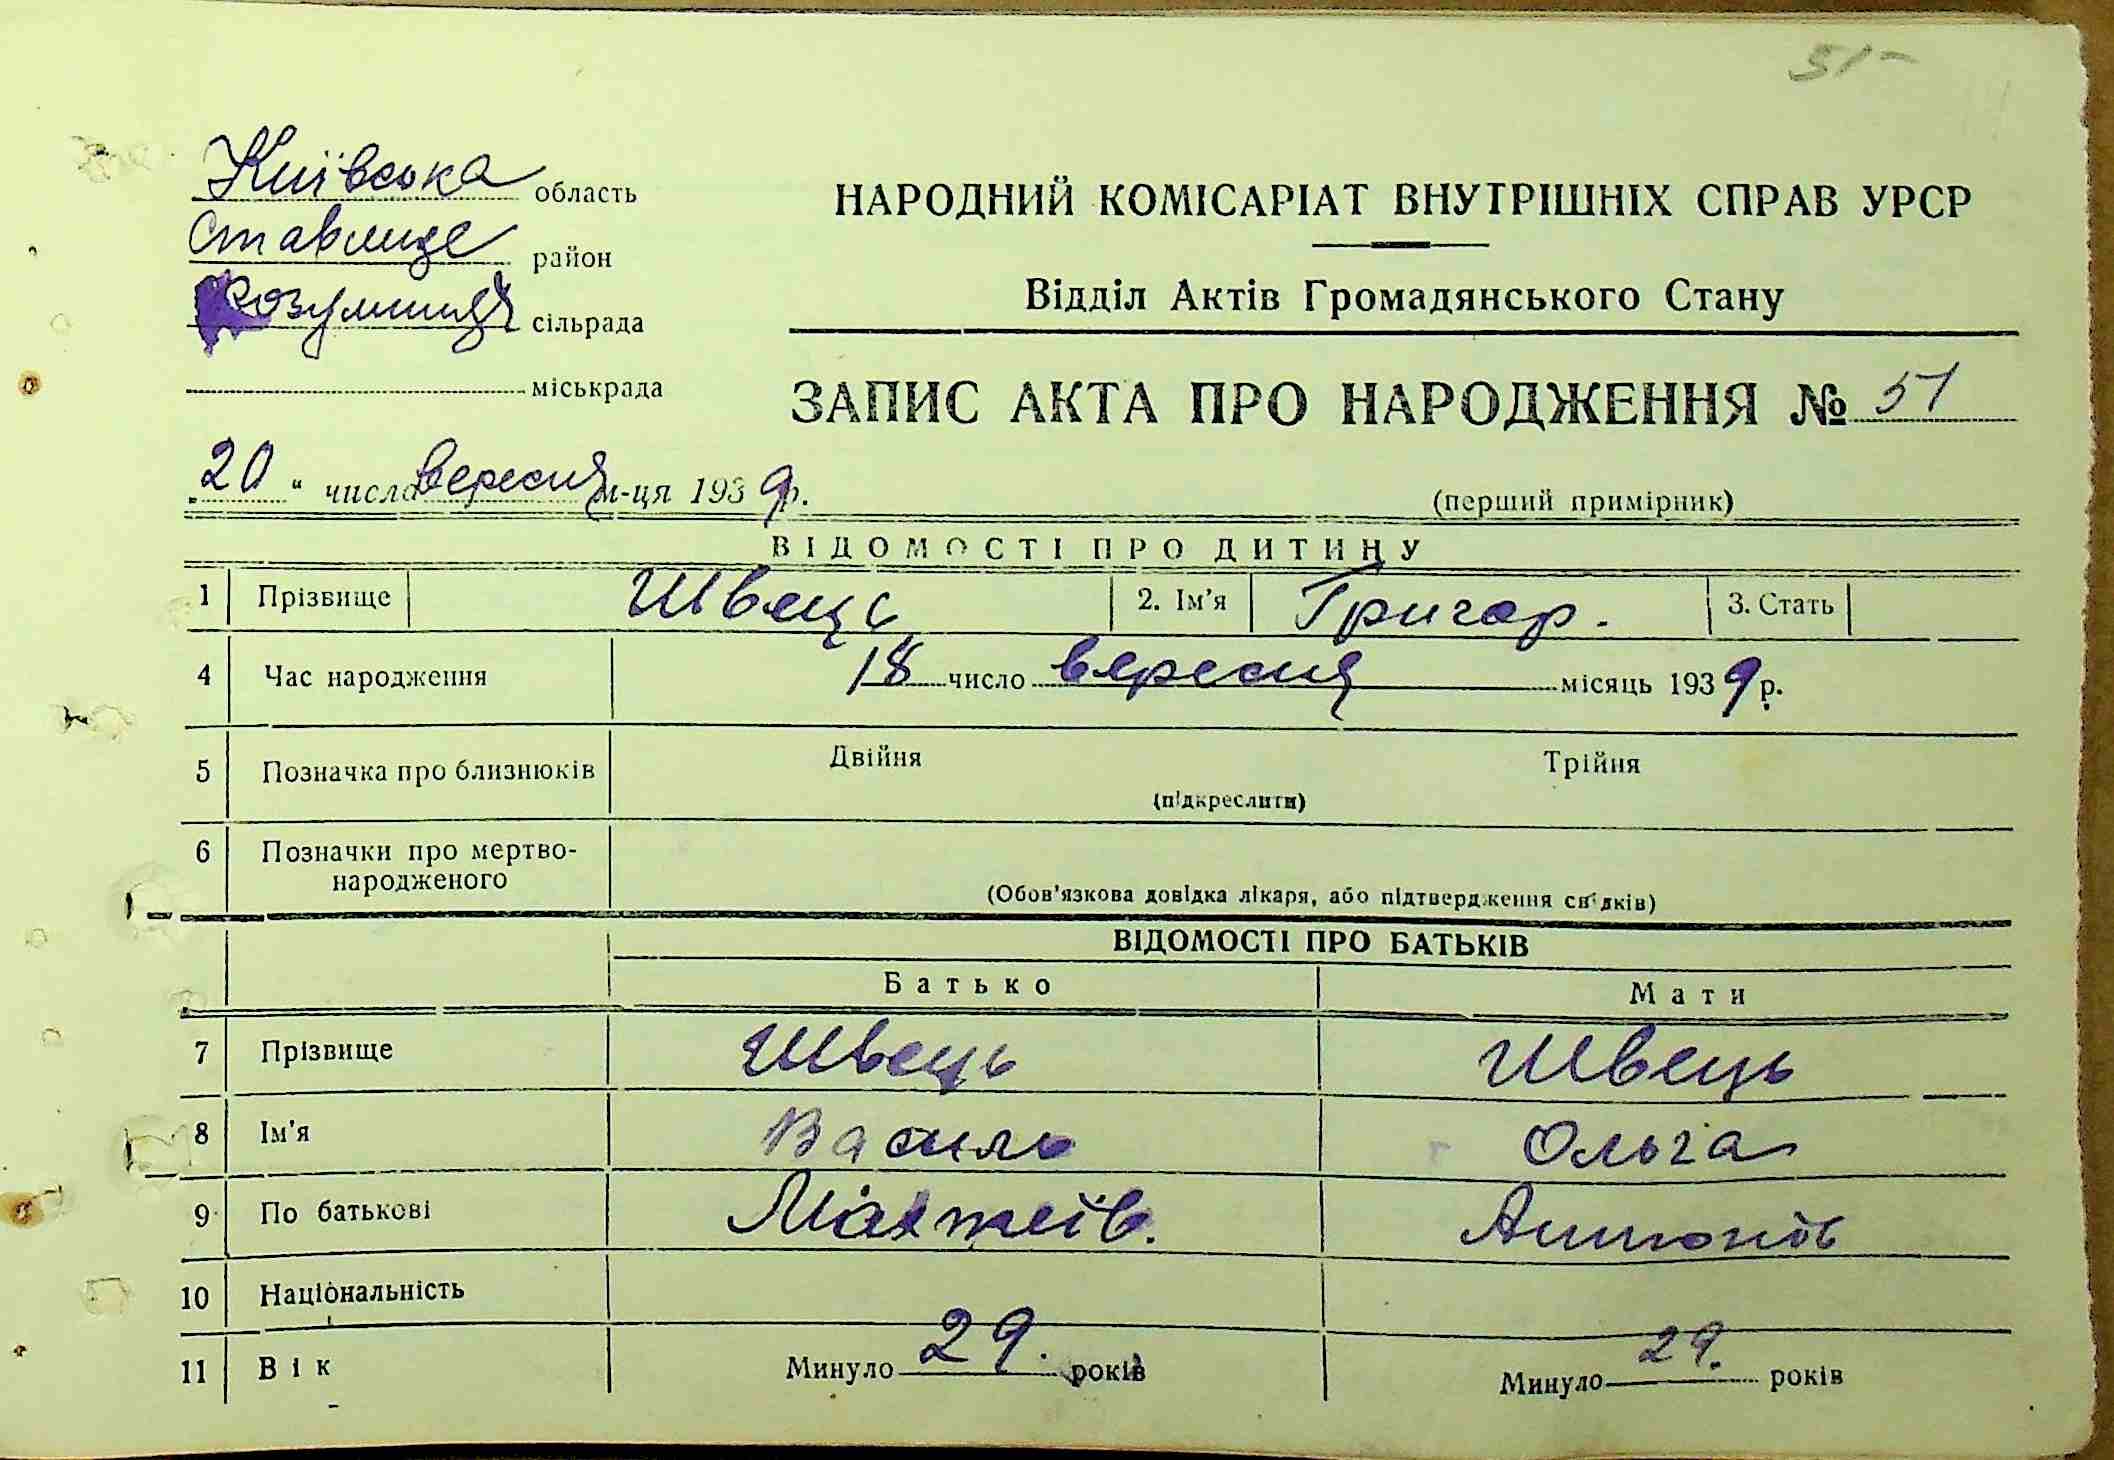 51
Київська область
Ставище район
Розумниця сільрада
міськрада
НАРОДНИЙ КОМІСАРІАТ ВНУТРІШНІХ СПРАВ УРСР
Відділ Актів Громадянського Стану
ЗАПИС АКТА ПРО НАРОДЖЕННЯ № 51
„20“ числа вересня м-ця 1939 р.
(перший примірник)
ВІДОМОСТІ ПРО ДИТИНУ
1 Прізвище Швець 2. Ім'я Григор. 3. Стать
4 Час народження 18 число вересня місяць 1939 р.
5 Позначка про близнюків Двійня Трійня
(підкреслити)
6 Позначки про мертво-
народженого
(Обов'язкова довідка лікаря, або підтвердження свідків)
ВІДОМОСТІ ПРО БАТЬКІВ
Батько Мати
7 Прізвище Швець Швець
8 Ім'я Василь Ольга
9 По батькові Матжеїв. Антонів
10 Національність
11 Вік Минуло 29. років Минуло 29. років